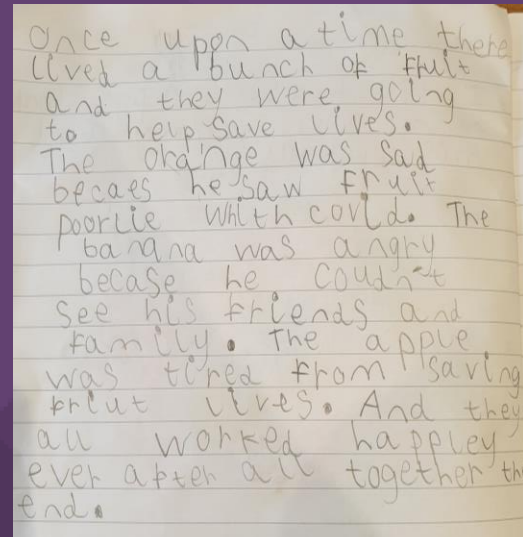 Once upon a time there
lived a bunch of fruit
and they were going
to help save lives.
The orange was sad
becaes he saw fruit
poorlie whith covid. The
banana was angry
becase he coudn't
see his friends and
family. The apple
was tired from saving
friut lives. And they
all worked happley
ever after all together the
end.